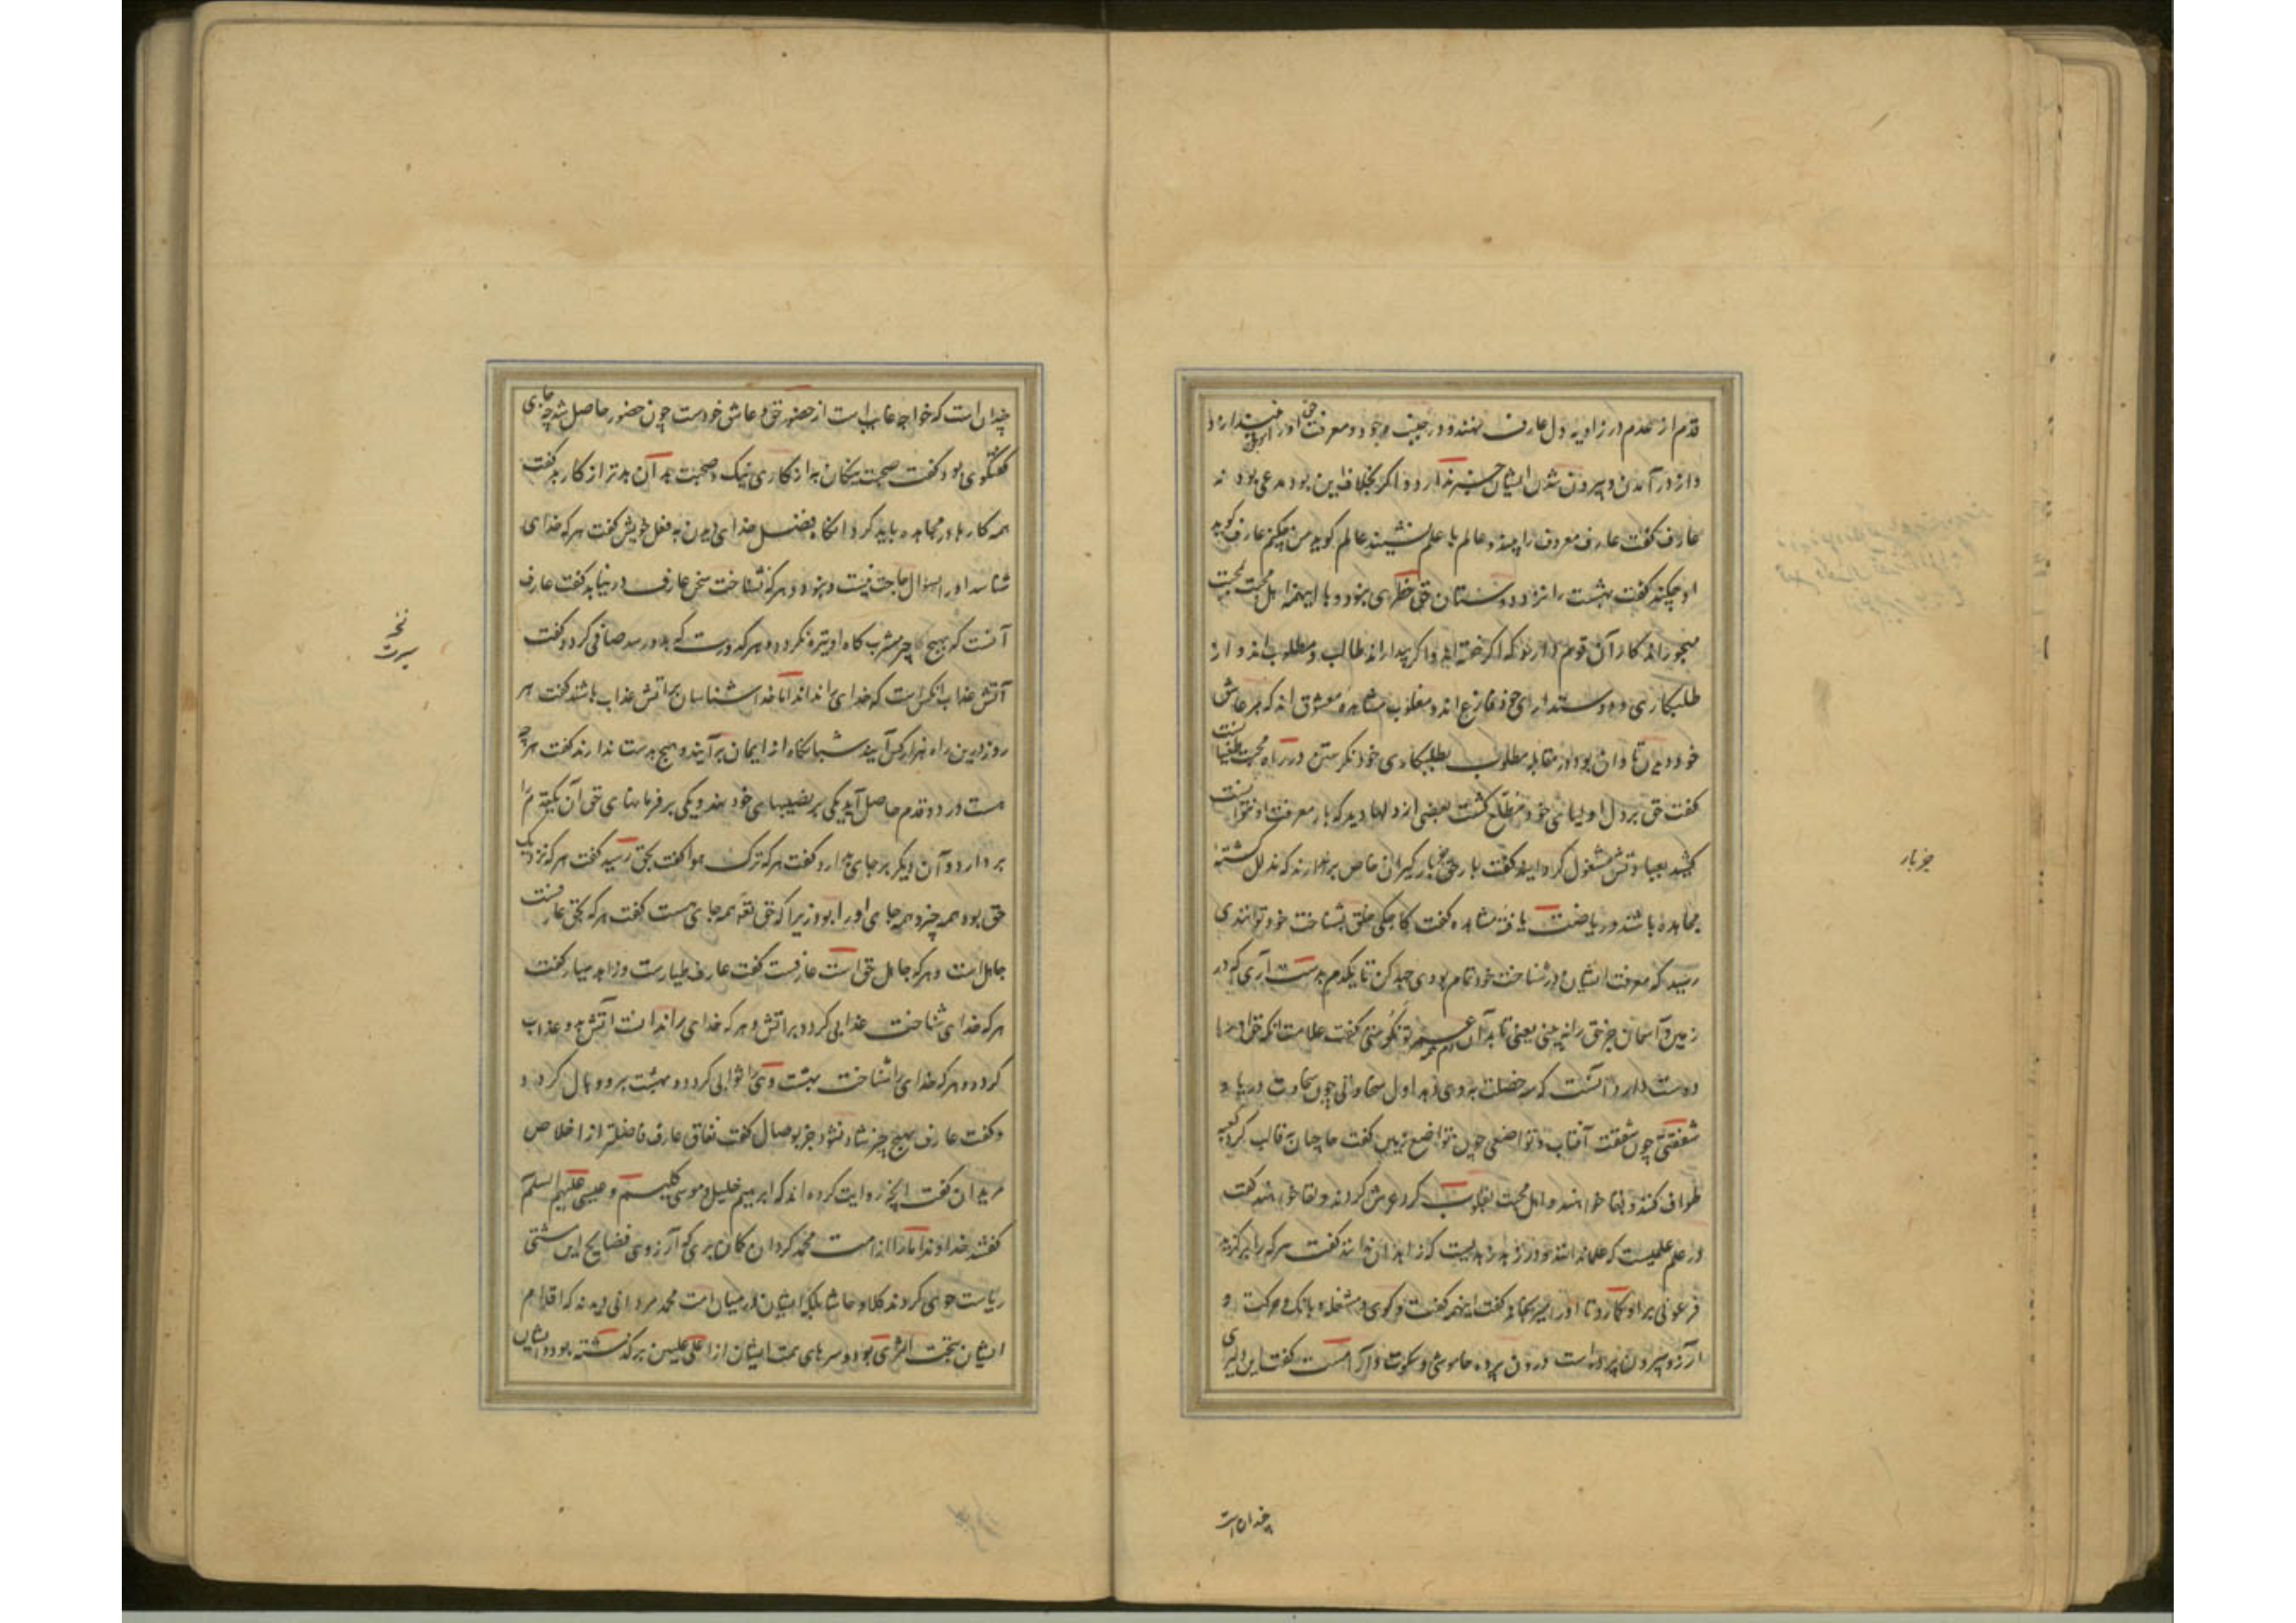 قدم از عدم در زاویه دل عارف نهند و در جنب وجود و معرفت حق او را
و از در آمدن و بیرون شدن ایشان خبر ندارد و اگر بخلاف این بود مدعی بود نه
عارف گفت عارف معروف را بیند و عالم با عالم نشیند عالم گوید من چکنم عارف گوید
او چکند گفت بهشت را نزد دوستان حق خطری نبود و با اینهمه اهل محبت بمحبت
مهجورند کار آن قوم دارند که اگر خفته اند و اگر بیدارند طالب و مطلوب اند و از
طلبکاری و دوستداری خود فارغ اند و مغلوب مشاهده معشوق اند که بر عاشق
خود دیدن تاوان بود و در مقابله مطلوب بطلبکاری خود نگرستن در راه محبت طغیانست
گفت حق بر دل اولیای خود مطلع گشت بعضی از دلها دید که بار معرفت او نتوانست
کشید بعبادتش مشغول گردانید گفت بار حق جز بارگیران خاص بر ندارند که مذلل گشته
مجاهده باشند و ریاضت یافته مشاهده گفت کاجکی خلق بشناخت خود توانندی
رسید که معرفت ایشان در شناخت خود تمام بودی جهد کن تا یکدم بدست آری که در
زمین و آسمان جز حق را نبینی یعنی تا بدان همه عمر توانگر منی گفت علامت آنکه حق او را
دوست دارد آنست که سه خصلت بدو دهد اول سخاوتی چون سخاوت دریا و
شفقتی چون شفقت آفتاب و تواضعی چون تواضع زمین گفت حاجیان به قالب گرد کعبه
طواف کنند و بقا خواهند و اهل محبت بقلوب گرد عرش گردند و لقا خواهند گفت
در علم علمیست که علما ندانند و در زهد زهدیست که زاهدان ندانند گفت هر که را برگزینند
فرعونی برو گمارد تا او را میرنجاند گفت اینهمه گفت و گوی و مشغله و بانگ و حرکت و
آرزو بیرون پرده است درون پرده خاموشی و سکوت و آرامست گفت این دلیری
چندان است
جز بار
چندان است که خواجه غایب است از حضور حق و عاشق خودست چون حضور حاصل شد چه جای
گفتگوی بود گفت صحبت نیکان به از کار نیک و صحبت بدان بدتر از کار بد گفت
همه کارها در مجاهده باید کرد آنگاه فضل خدای دیدن نه فعل خویش گفت هر که خدای
شناسد او را بسوال حاجت نیست و نبود و هر که نشناخت سخن عارف در نیابد گفت عارف
آنست که هیچ چیز مشرب گاه او تیره نگرداند و هر کدورت که بدو رسد صافی گردد گفت
آتش عذاب آنکس است که خدای را نداند اما خداشناسان بر آتش عذاب باشند گفت هر
روز درین راه هزار کس آیند شبانگاه از ایمان برآیند و هیچ بدست ندارند گفت هر چه
هست در دو قدم حاصل آید یکی بر نصیبهای خود نهد و یکی بر فرمانهای حق آن یک قدم را
بر دارد و آن دیگر بر جای دارد گفت هر که ترک هوا گفت بحق رسید گفت هر که نزدیک
حق بود همه چیز و همه جای او را بود زیرا که حق تعالی همه جای هست گفت هر که بحق عارفست
جاهل است و هر که جاهل حق است عارفست گفت عارف طیارست و زاهد سیار گفت
هر که خدای شناخت عذابی گردد بر آتش و هر که خدای را ندانست آتش برو عذاب
گردد و هر که خدای را شناخت بهشت را ثوابی گردد و بهشت برو وبال گردد
و گفت عارف بهیچ چیز شاد نشود جز بوصال گفت نفاق عارف فاضلتر از اخلاص
مریدان گفت آنچه روایت کرده اند که ابرهیم خلیل و موسی کلیم و عیسی علیهم السلم
گفتند خداوندا ما را از امت محمد گردان گمان بری که آرزوی فضایح این مشتی
ریاست جوی کردند کلا و حاشا بلکه ایشان در میان امت محمد مردانی دیدند که اقدام
ایشان بتحت الثری بود و سرهای همت ایشان از اعلی علیین برگذشته بود و ایشان